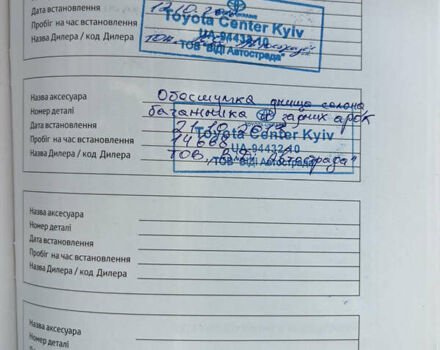 Дата встановлення
Пробіг на час встановлення
Назва Дилера / код Дилера ТОВ
Toyota Center Kyiv
UA-9443240
ТОВ "ВІДІ Автострада"
Назва аксесуара Обосшумка днища салона,
Номер деталі багажника арок
Дата встановлення 21.10.
Пробіг на час встановлення 14668
Назва Дилера / код Дилера ТОВ
Toyota Center Kyiv
UA-9443240
ТОВ "ВІДІ Автострада"
Назва аксесуара
Номер деталі
Дата встановлення
Пробіг на час встановлення
Назва Дилера / код Дилера
Назва аксесуара
Номер деталі